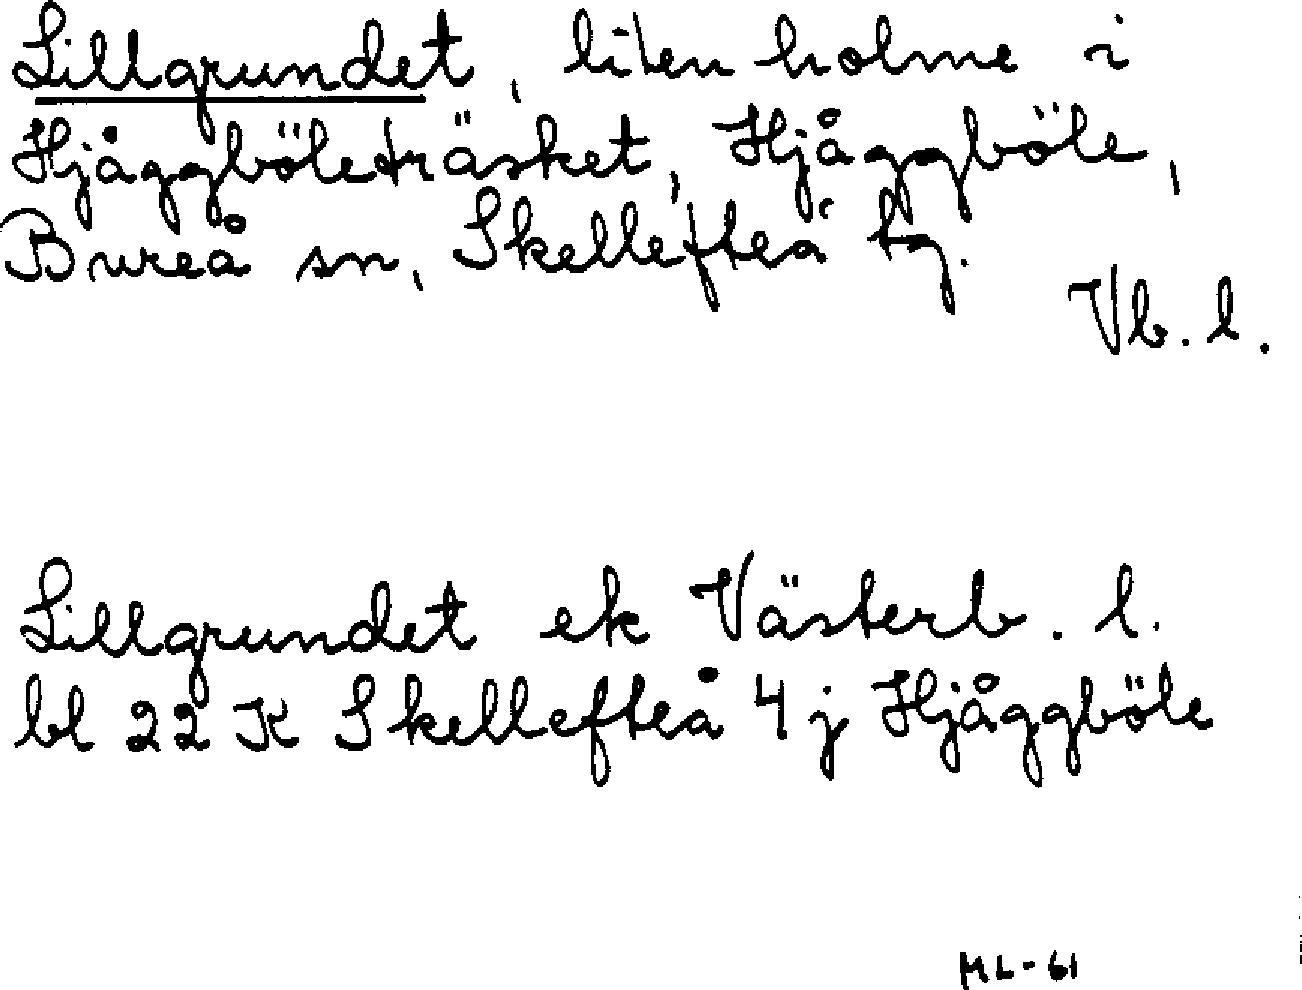 Lillgrundet, liten holme i
Hjåggböleträsket, Hjåggböle,
Bureå sn, Skellefteå tg.
Vb. l.
Lillgrundet ek Västerb. l.
bl 22 K Skellefteå 4 j Hjåggböle
ML-61